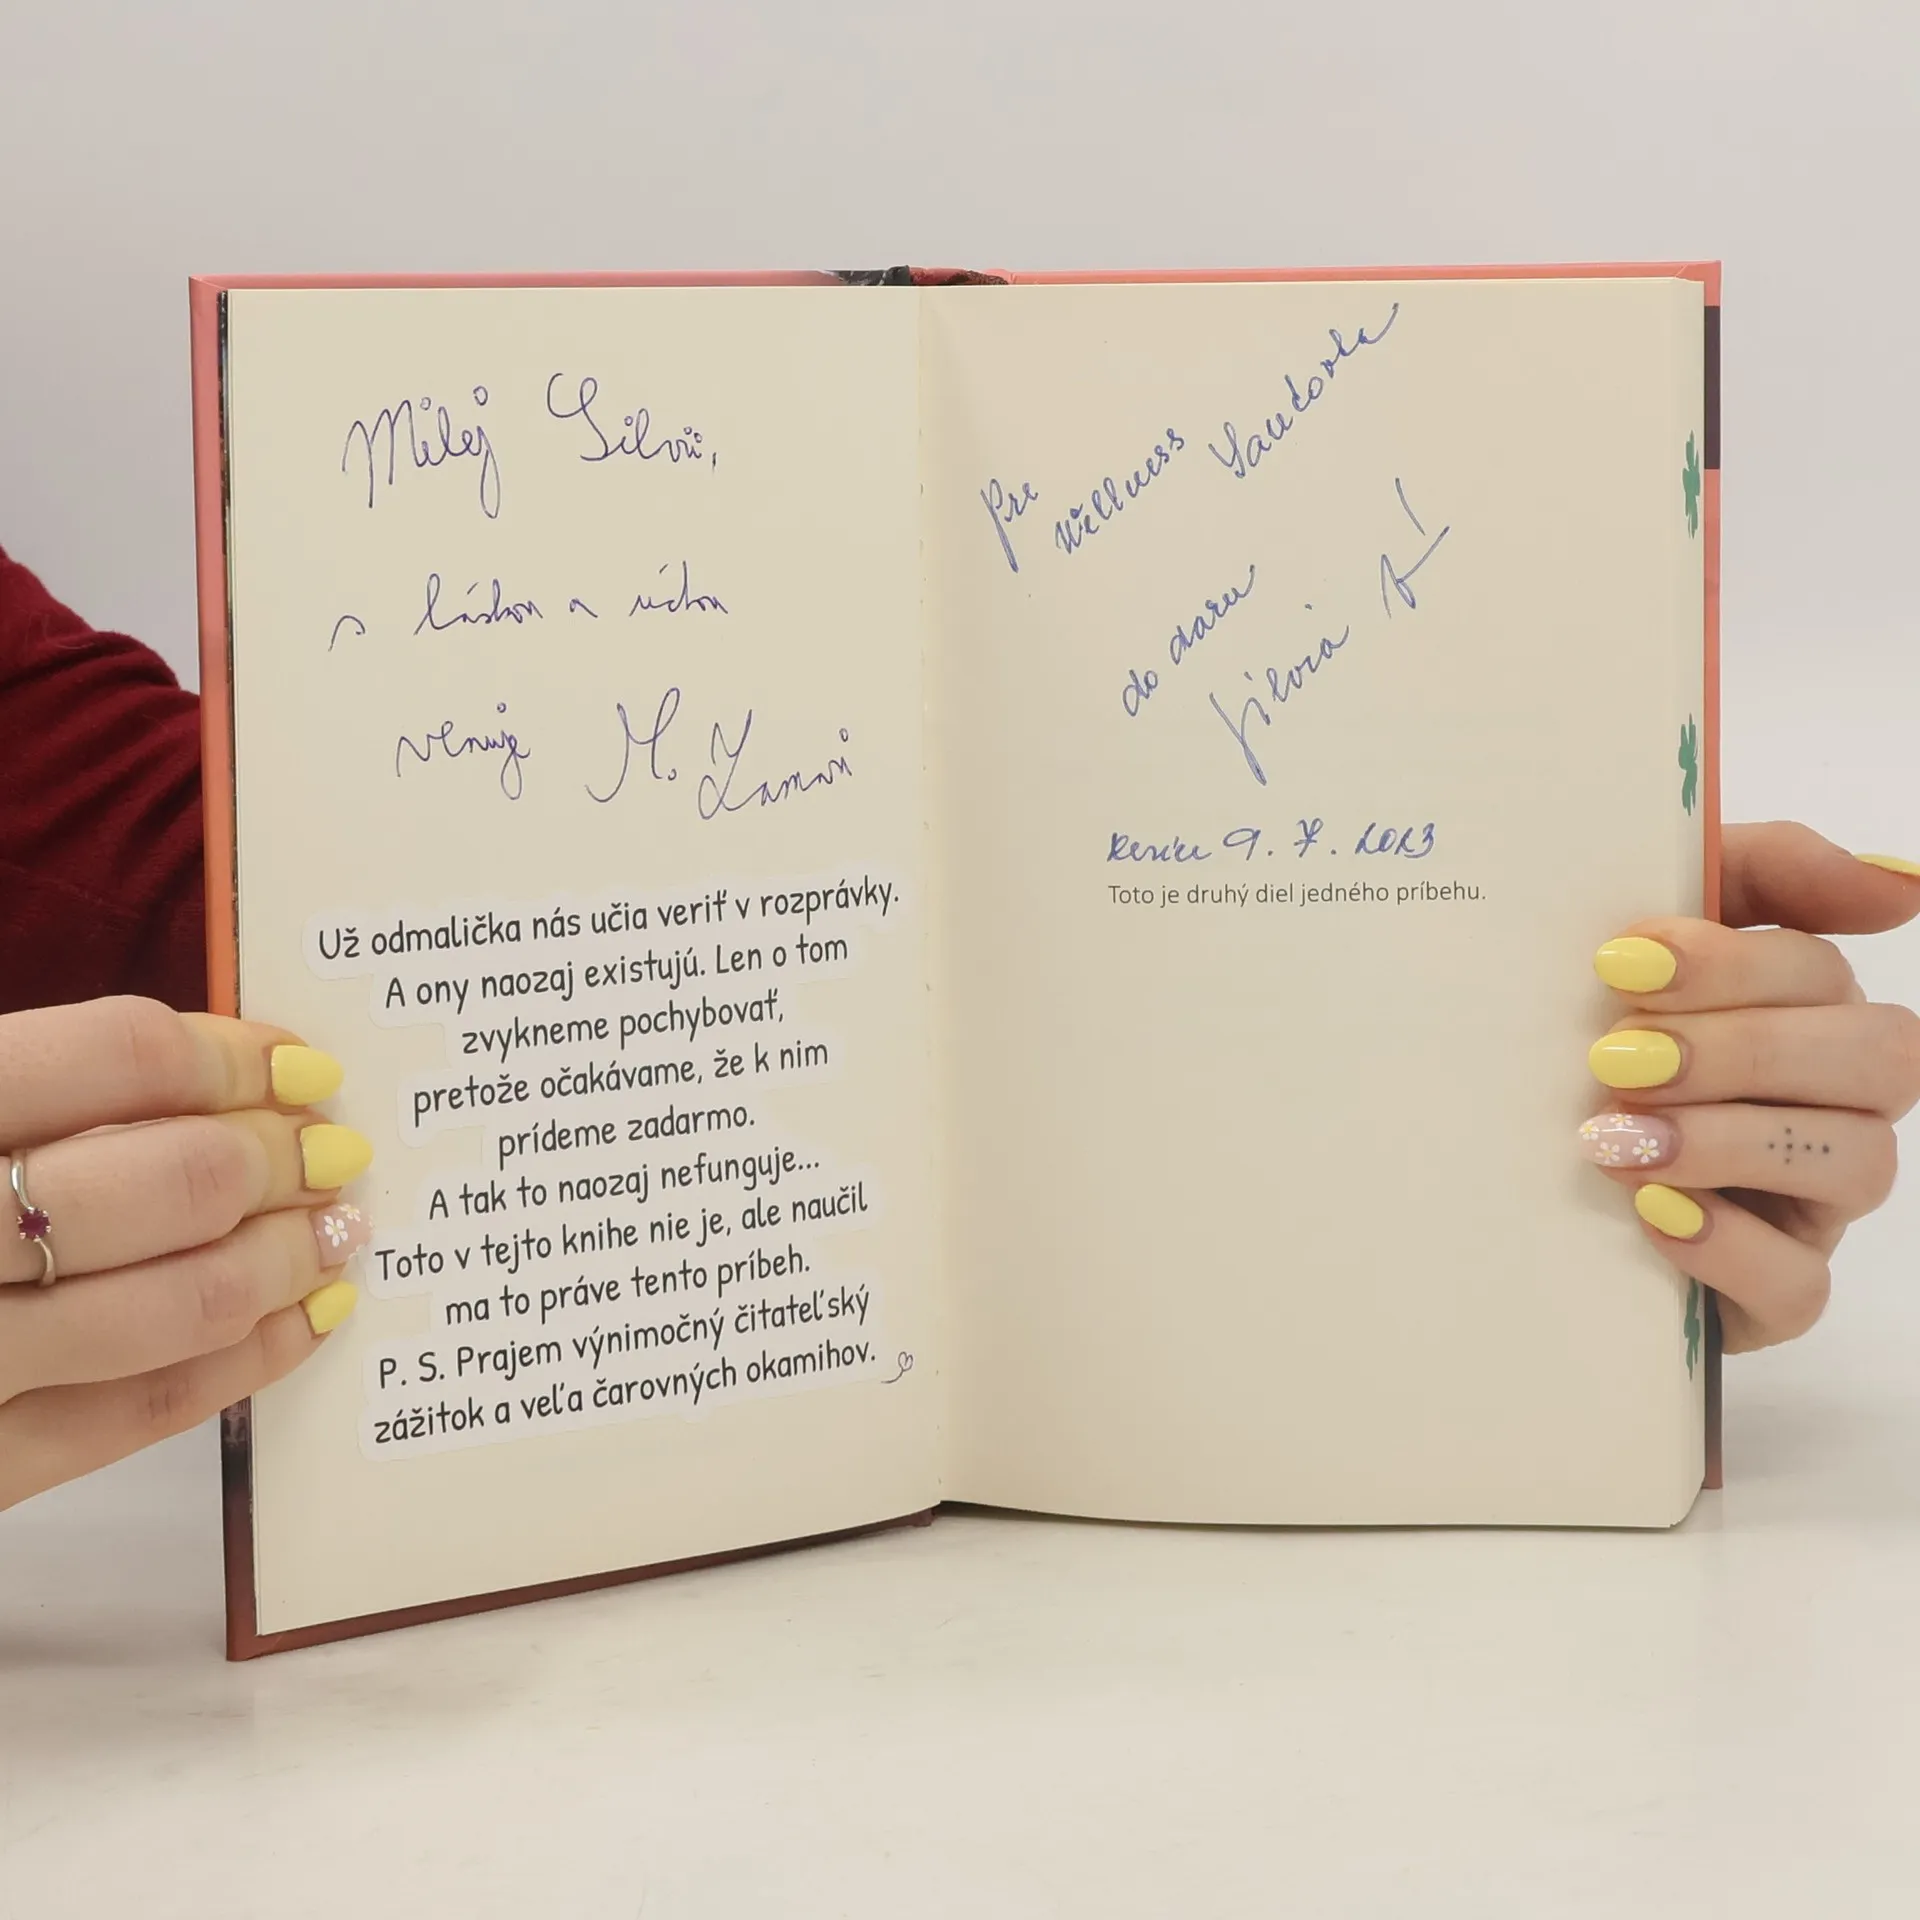 Milej Silvii,
s láskou a úctou
venuje M.
Už odmalička nás učia veriť v rozprávky.
A ony naozaj existujú. Len o tom
zvykneme pochybovať,
pretože očakávame, že k nim
prídeme zadarmo.
A tak to naozaj nefunguje...
Toto v tejto knihe nie je, ale naučil
ma to práve tento príbeh.
P. S. Prajem výnimočný čitateľský
zážitok a veľa čarovných okamihov.
Pre Wellness
do daru
Silvia
9. 7. 2023
Toto je druhý diel jedného príbehu.